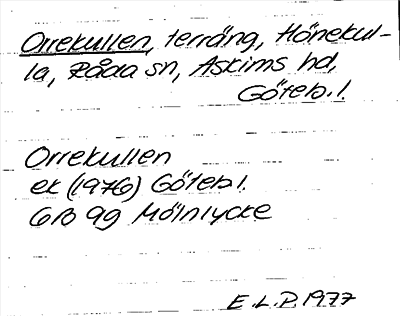 Orrekullen, terräng, Hönekul-
la, Råda sn, Askims hd,
Göteb. l.
Orrekullen
ek (1976) Göteb l.
6B 9g Mölnlycke
E.L.P. 1977